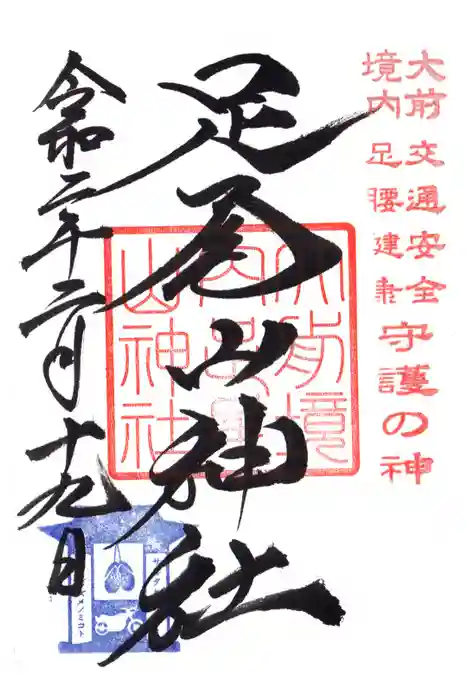 大前 交通安全
境内 足腰建康
守護の神
足尾山神社
大前境
内足尾
山神社
令和二年二月十九日
メノミコト